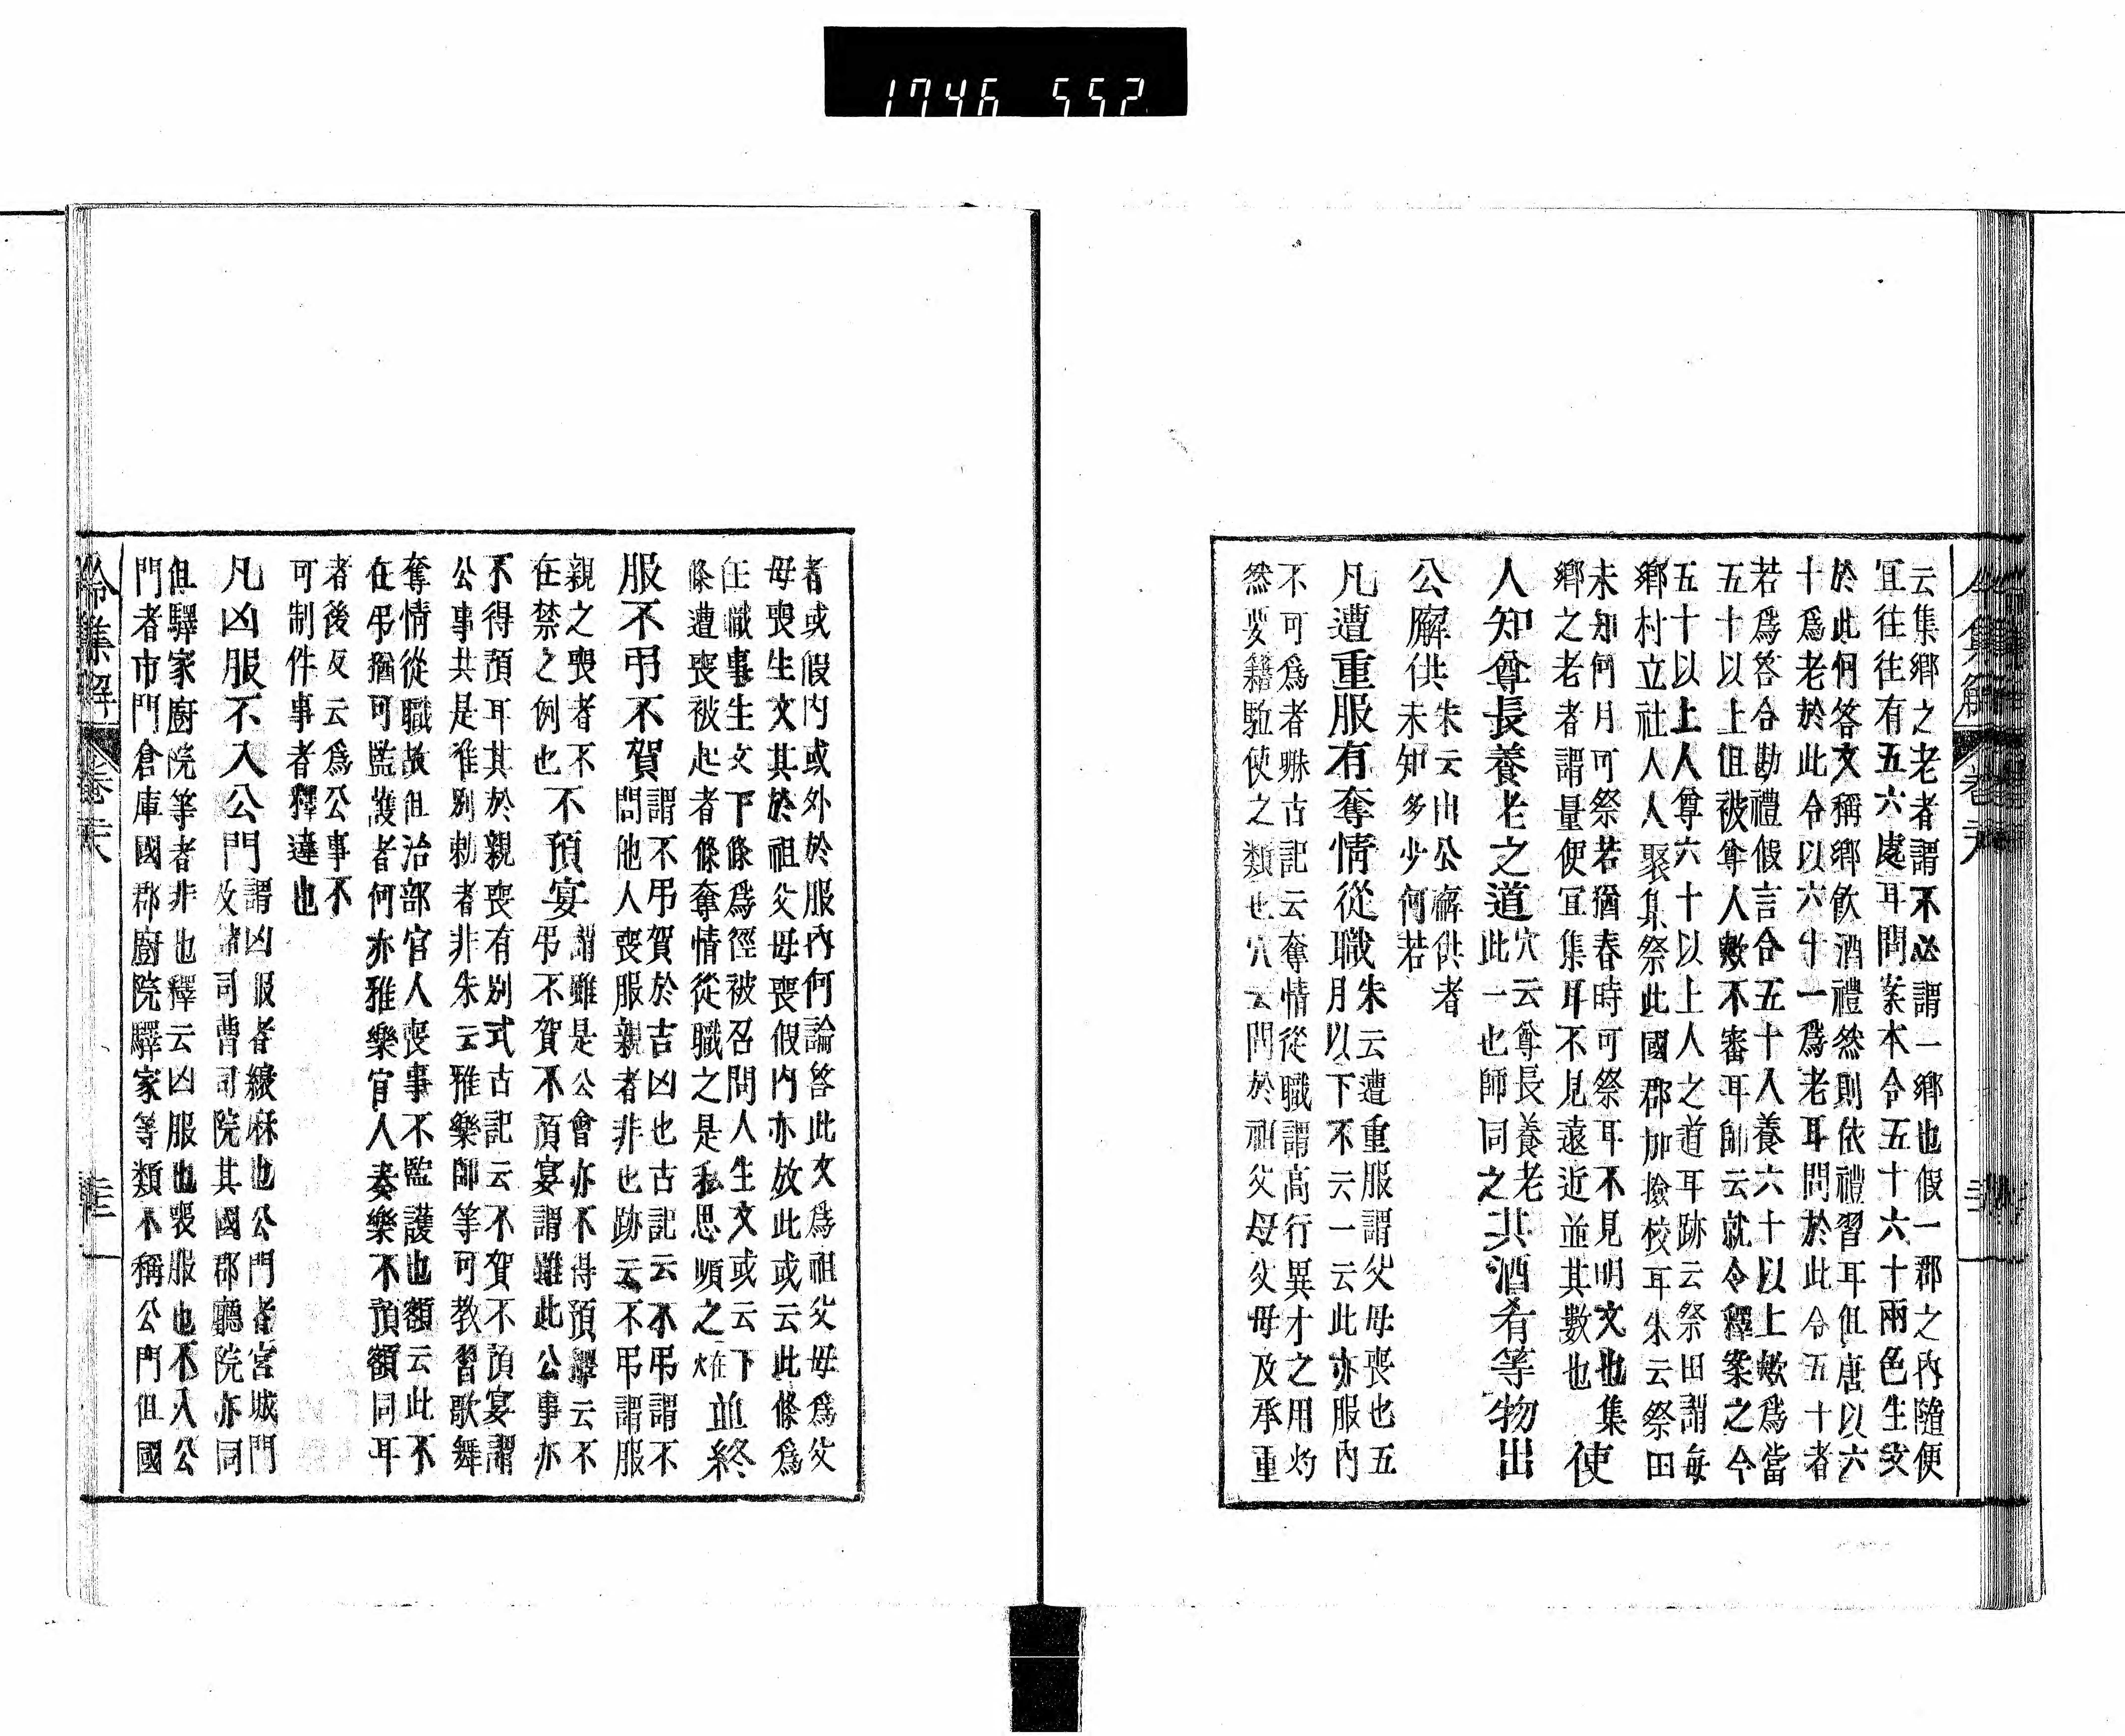 1746 552
云集鄉之老者謂不必謂一鄉也假一郡之內隨便
宜往往有五六處耳問案本令五十六十兩色生文
於此何答文稱鄉飲酒禮然則依禮習耳但唐以六
十爲老於此令以六十一爲老耳問於此令五十者
若爲答合勘禮假言合五十人養六十以上歟爲當
五十以上但被尊人歟不審耳師云就令釋案之今
五十以上人尊六十以上人之道耳跡云祭田謂每
鄉村立社人人聚集祭此國郡加撿校耳朱云祭田
未知何月可祭若猶春時可祭耳不見明文也集
鄉之老者謂量便宜集耳不見遠近並其數也
使
人知尊長養老之道
穴云尊長養老
此一也師同之
共酒肴等物出
公廨供
朱云由公廨供者
未知多少何若
凡遭重服有奪情從職
朱云遭重服謂父母喪也五
月以下不云一云此亦服內
不可爲者縣古記云奪情從職謂高行異才之用灼
然要籍駈使之類也穴云問於祖父母父母及承重
者或假內或外於服內何論答此文爲祖父母爲父
母喪生文其於祖父母喪假內亦放此或云此條爲
任職事生文下條爲徑被召問人生文或云下
條遭喪被起者條奪情從職之是私思願之
在
並終
服不弔不賀
謂不弔賀於吉凶也古記云不弔謂不
問他人喪服親者非也跡云不弔謂服
親之喪者不
在禁之例也
不預宴
謂雖是公會亦不得預釋云不
弔不賀不預宴謂雖此公事亦
不得預耳其於親喪有別式古記云不賀不預宴謂
公事共是唯別勅者非朱云雅樂師等可教習歌舞
奪情從職故但治部官人喪事不監護也額云此不
在弔猶可監護者何亦雅樂官人奏樂不預額同耳
者後反云爲公事不
可制件事者釋違也
凡凶服不入公門
謂凶服者縗麻也公門者宮城門
及諸司曹司院其國郡廳院亦同
但驛家廚院等者非也釋云凶服也喪服也不入公
門者市門倉庫國郡廚院驛家等類不稱公門但國
令集解 卷六